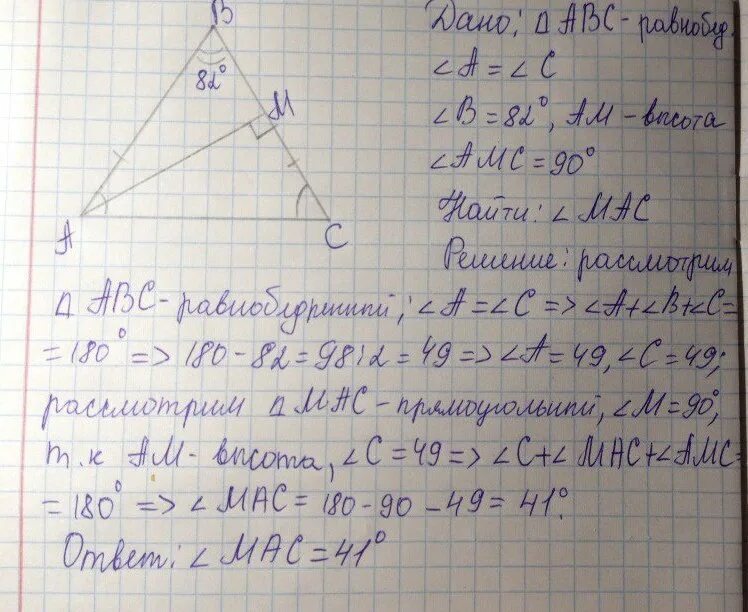 B
82°
M
A
C
Дано: Δ ABC - равнобед.
∠A = ∠C
∠B = 82°, AM - высота
∠AMC = 90°
Найти: ∠ MAC
Решение: рассмотрим
Δ ABC - равнобедренный; ∠A = ∠C => ∠A+∠B+∠C=
= 180° => 180 - 82 = 98:2 = 49 => ∠A = 49, ∠C = 49;
рассмотрим Δ MAC - прямоугольный, ∠M = 90°,
т.к AM - высота, ∠C = 49 => ∠C+∠ MAC+∠AMC=
= 180° => ∠ MAC = 180 - 90 - 49 = 41°.
Ответ: ∠ MAC = 41°